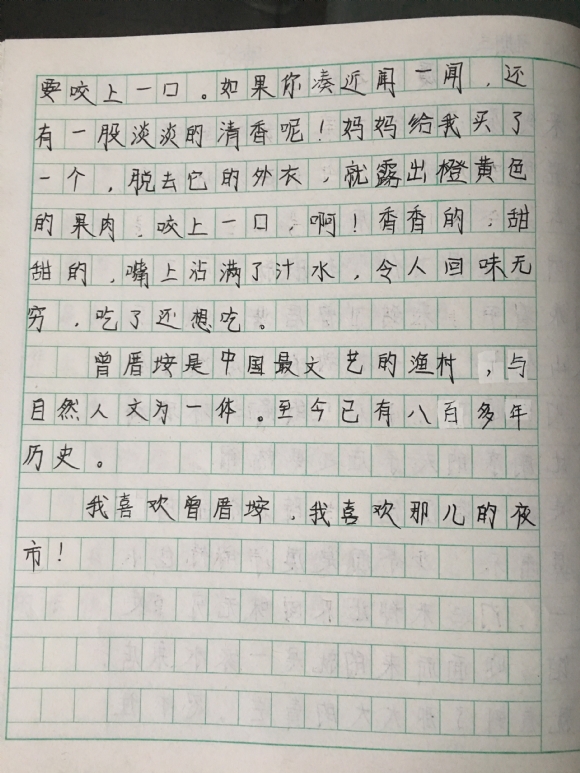 要咬上一口。如果你凑近闻一闻，还
有一股淡淡的清香呢！妈妈给我买了
一个，脱去它的外衣，就露出橙黄色
的果肉，咬上一口，啊！香香的，甜
甜的，嘴上沾满了汁水，令人回味无
穷，吃了还想吃。
曾厝垵是中国最文艺的渔村，与
自然人文为一体。至今已有八百多年
历史。
我喜欢曾厝垵，我喜欢那儿的夜
市！